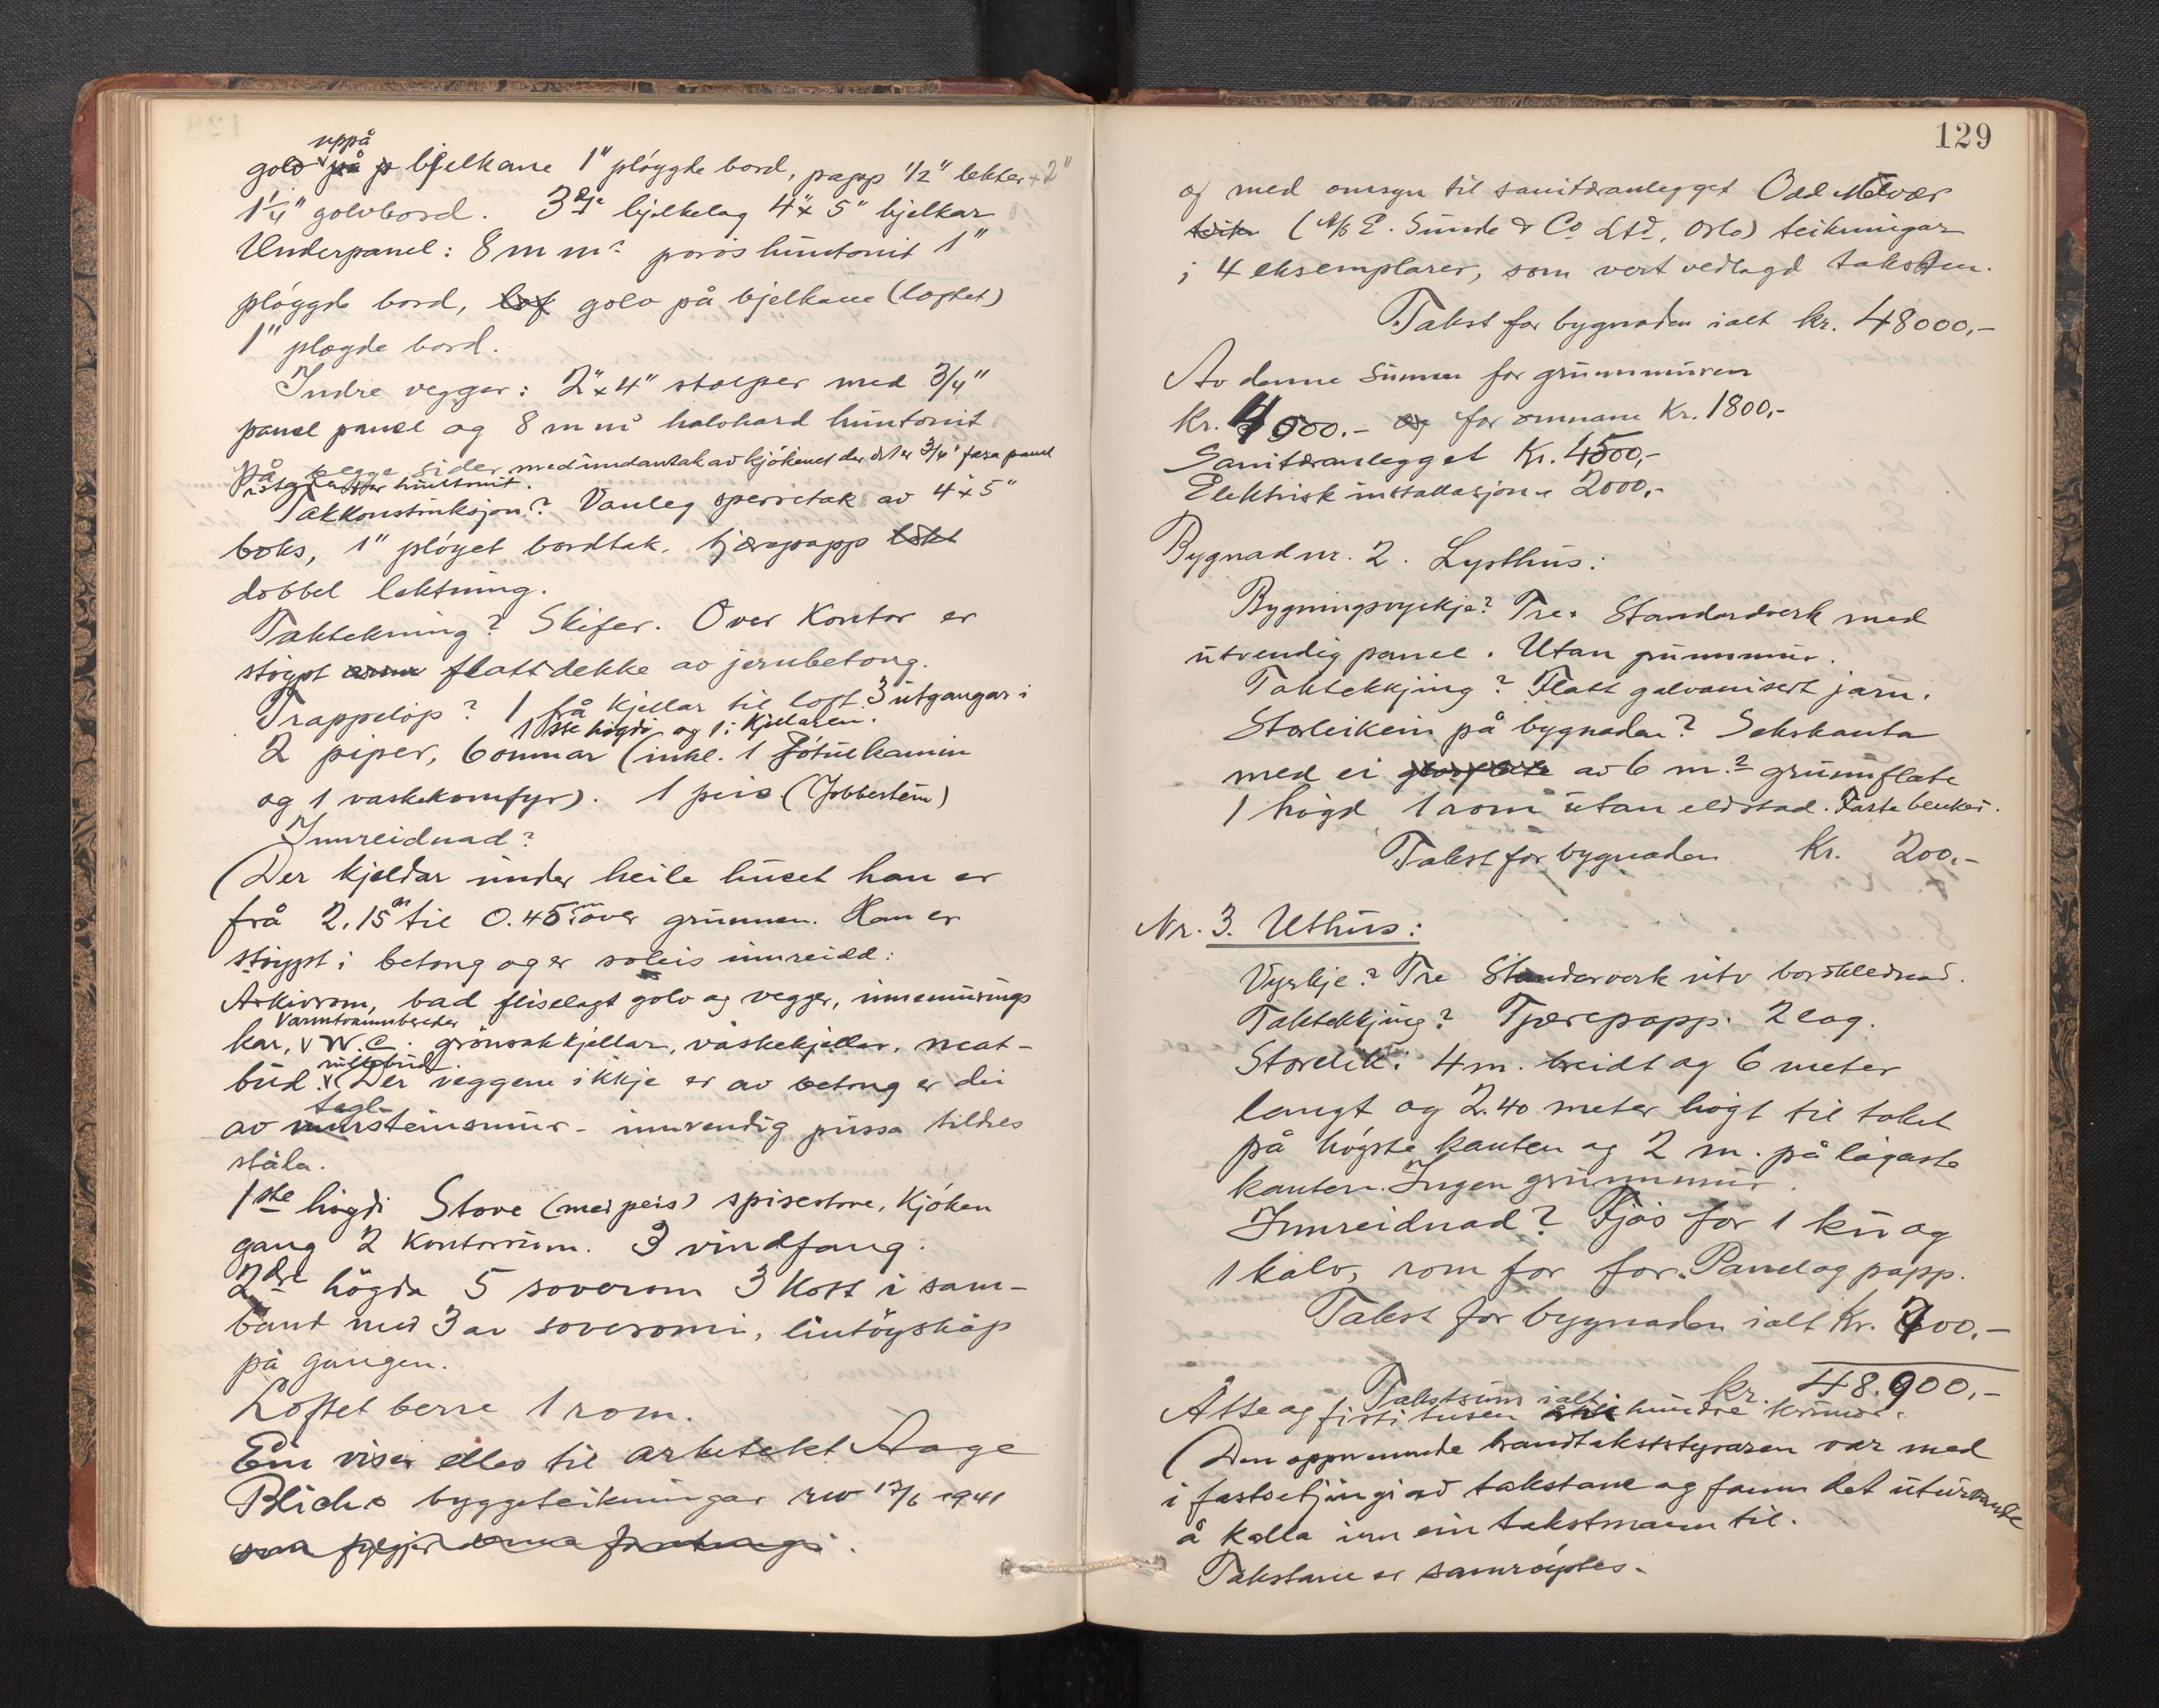 uppå
golv på bjelkane 1" pløygde bord, papp 1/2" lekter + 2"
1 1/4" golvbord. 3dje bjelkelag 4"x 5" bjelkar
Underpanel: 8 m m? porøs huntonit 1"
pløggde bord, lof golv på bjelkane (loftet)
1" pløgde bord.
Indre vegger: 2"x4" stolper med 3/4"
panel panel og 8 m m halvhard huntonit
på begge sider med undantak av kjøkenet der det er 3/4" fasa panel
istadenfor huntonit.
Takkonstruksjon? Vanleg sperretak av 4"x5"
boks, 1" pløyet bordtak, tjærepapp
dobbel lektning.
Taktekning? Skifer. Over Kontor er
støypt flatt dekke av jernbetong.
Trappeløp? 1 frå kjellar til loft. 3 utgangar i
1ste høgdi og 1 i Kjellaren.
2 piper, 6 omnar (inkl. 1 Jøtulkamin
og 1 vaskekomfyr). 1 peis (Jobbestein)
Innreidnad?
(Der kjeldar under heile huset han er
frå 2.15 m til 0.45 m over grunnen. Han er
støypt i betong og er soleis innreidd:
Arkivrom, bad fliselagt golv og vegger, innemurings
Varmtvannbereder
kar, v W.C. grønsakkjellar, vaskekjellar, mat-
rullebud
bud. v Der veggene ikkje er av betong er dei
tegl-
av mursteinsmur - innvendig pussa tildels
ståla.
1ste høgdi Stove (med peis) spisestove, Kjøken
gang 2 Kontorrum. 3 vindfang.
2dre høgda 5 soverom 3 Kott i sam-
bant med 3 av soveromi, lintøyskåp
på gangen.
Loftet berre 1 rom.
Ein viser elles til arkitekt Aage
Blichs byggeteikningar rev 17/6 1941
som fylgjer denne forretningi.
129
og med omsyn til sanitæranlegget Odd Melvær
(A/S E. Sunde & Co Ltd, Oslo) teikningar
i 4 eksemplarer, som vert vedlagd taksten.
Takst for bygnaden ialt kr. 48000,-
Av denne Summen for grunnmuren
kr. 4000.- og for omnane Kr. 1800,-
Sanitæranlegget Kr. 4500,-
Elektrisk installasjon " 2000,-
Bygnad nr. 2. Lysthus:
Bygningsvyrkje? Tre. Standardverk med
utvendig panel. Utan grunnmur.
Taktekkjing? Flatt galvanisert jarn.
Storleiken på bygnaden? Sekskanta
med ei av 6 m.2 grunnflate
1 høgd 1 rom utan eldstad. Faste benker.
Takst for bygnaden Kr. 200,-
Nr. 3. Uthus:
Vyrkje? Tre Standerverk utv bordklednad.
Taktekkjing? Tjærepapp. 2 lag.
Storleik: 4 m. breidt og 6 meter
langt og 2.40 meter høgt til taket
på høgste kanten og 2 m. på lågaste
kanten. Ingen grunnmur.
Innreidnad? Fjøs for 1 ku og
1 kalv, rom for for. Panel og papp.
Takst for bygnaden ialt Kr. 700.-
Takstsum ialt kr. 48.900,-
Åtte og førti tusen hundre kronor.
(Den oppnemnde brandtakststyraren var med
i fastsetjingi av takstane og fann det uturvande
å kalla inn ein takstmann til.
Takstane er samrøystes.